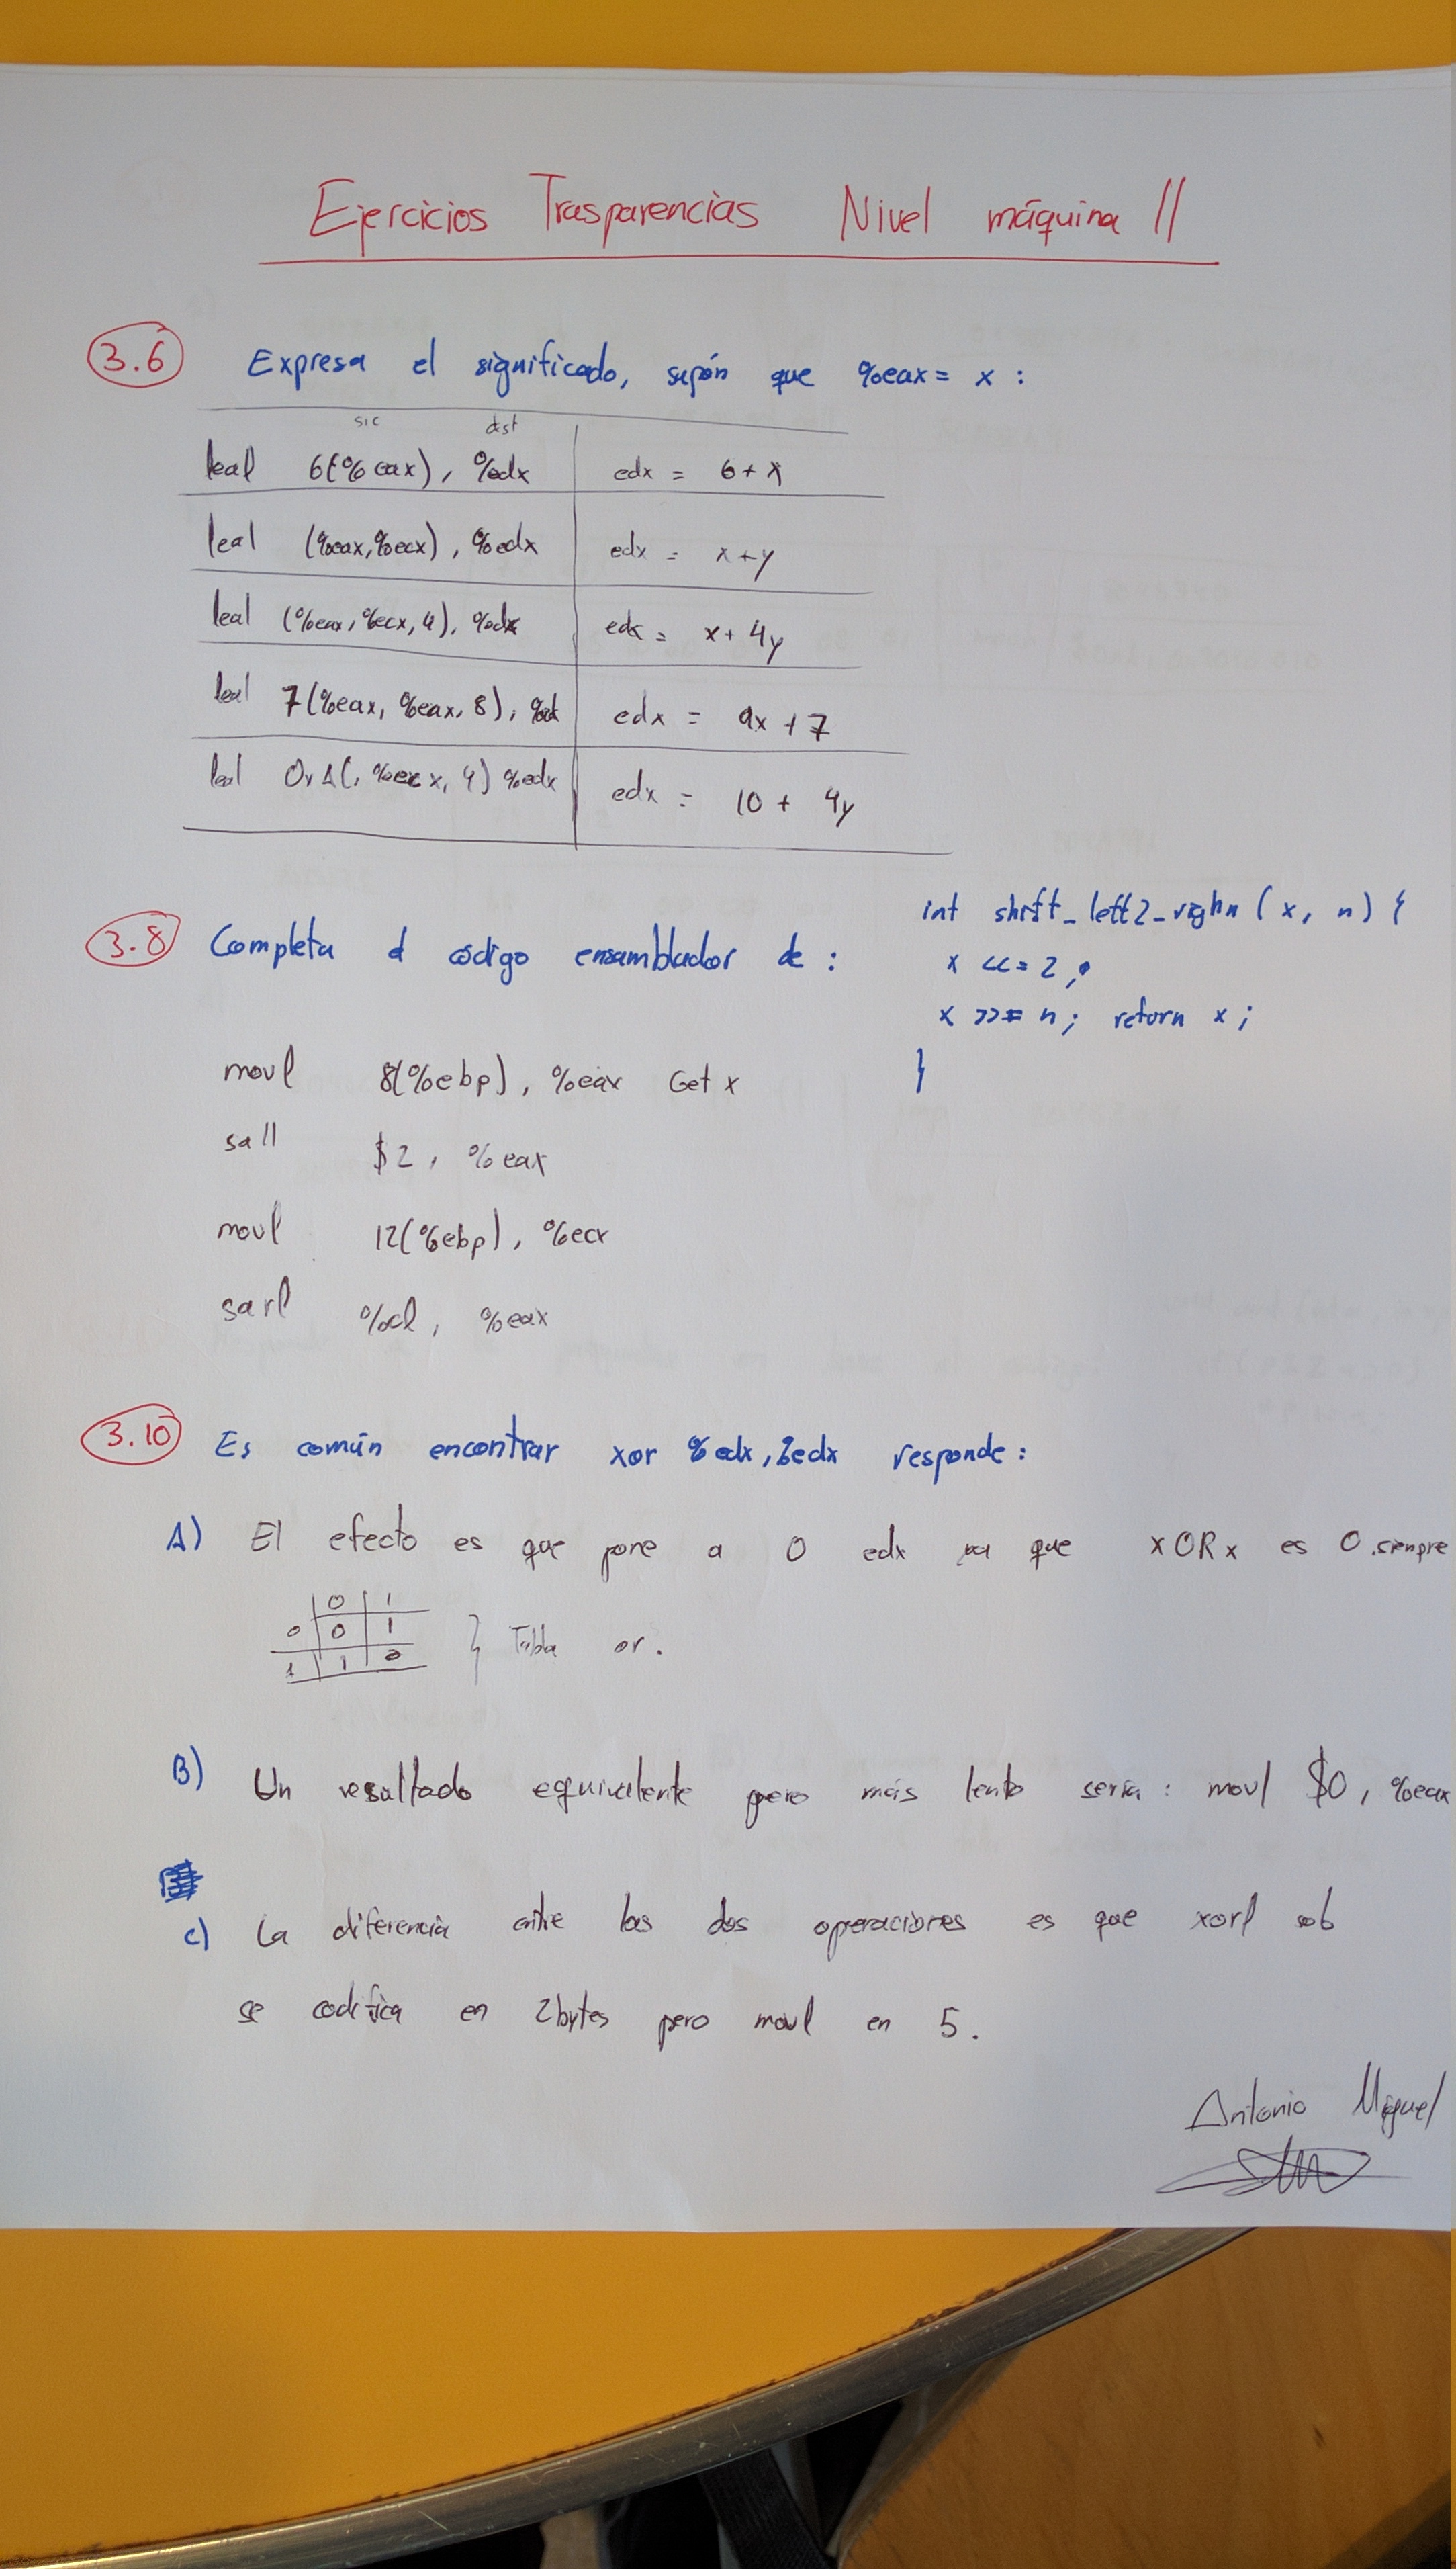 Ejercicios Trasparencias Nivel máquina II
3.6 Expresa el significado, supón que %eax = x :
src dest
leal 6(%eax), %edx edx = 6 + x
leal (%eax,%ecx), %edx edx = x+y
leal (%eax,%ecx,4), %edx edx = x + 4y
leal 7(%eax, %eax, 8), %edx edx = 9x + 7
leal 0xA(, %ecx, 4) %edx edx = 10 + 4y
3.8 Completa el código ensamblador de :
int shift_left2_righn (x, n) {
x <<= 2;
x >>= n; return x;
}
movl 8(%ebp), %eax Get x
sall $2, %eax
movl 12(%ebp), %ecx
sarl %cl, %eax
3.10 Es común encontrar xor %edx, %edx responde :
A) El efecto es que pone a 0 edx ya que x OR x es 0 siempre
0 1
0 0 1
1 1 0
} Tabla or.
B) Un resultado equivalente pero más lento sería : movl $0, %eax
C) La diferencia entre las dos operaciones es que xorl
se codifica en 2bytes pero movl en 5.
Antonio Miguel